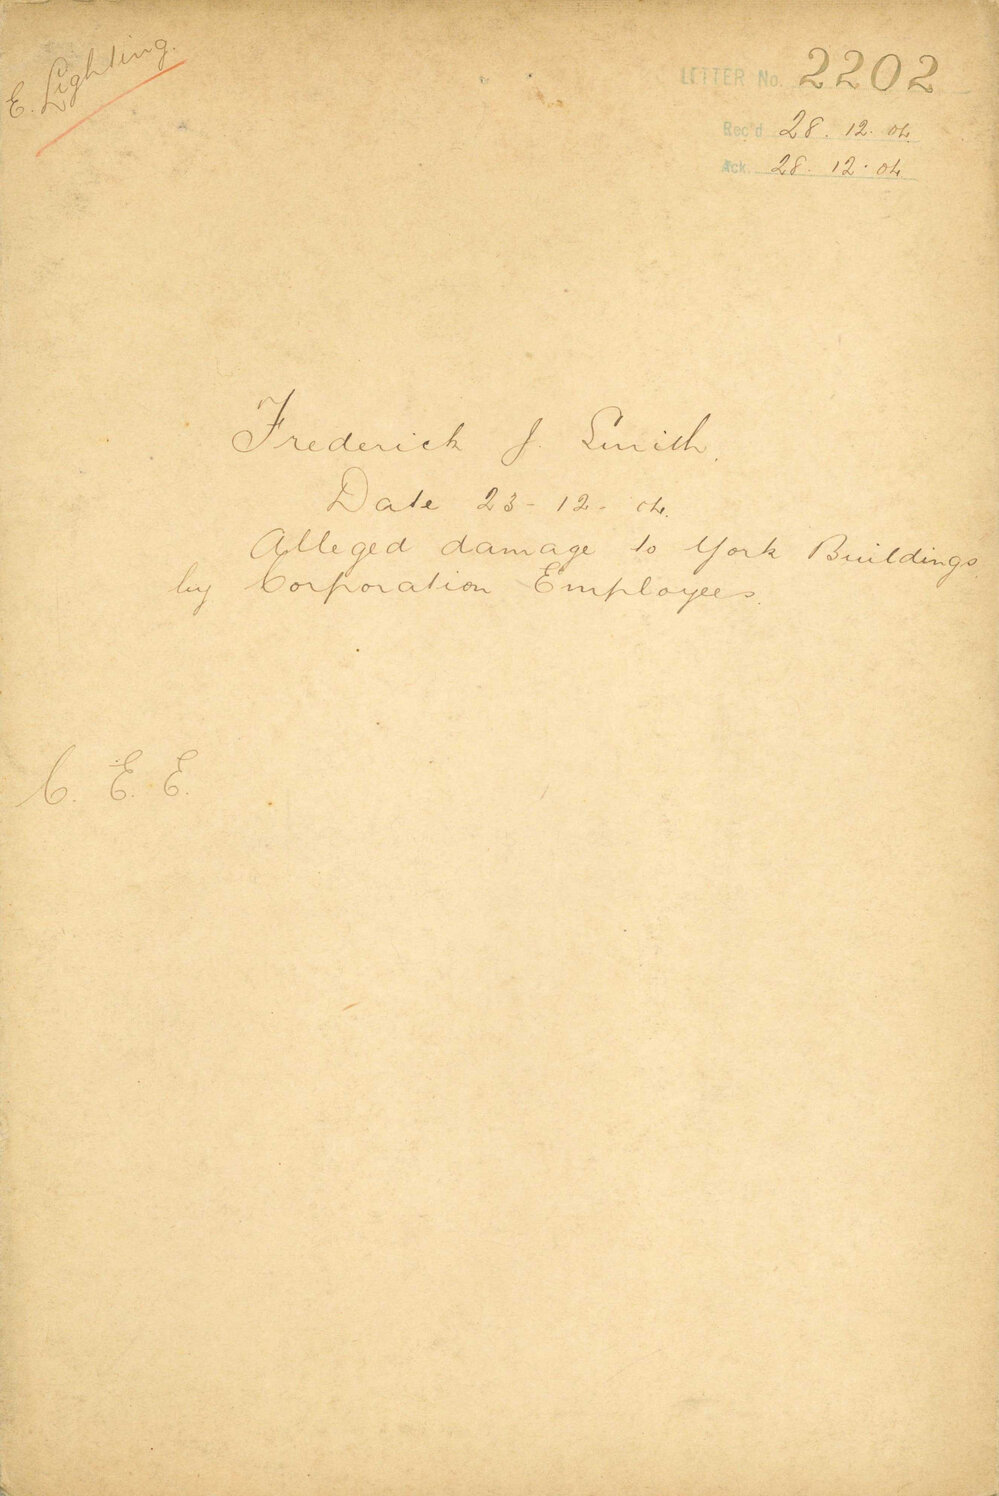 E. Lighting.
LETTER No. 2202
Rec'd 28. 12. 04.
Ack. 28. 12. 04.
Frederick J. Smith.
Date 23-12-04.
Alleged damage to York Buildings
by Corporation Employees.
C. E. E.